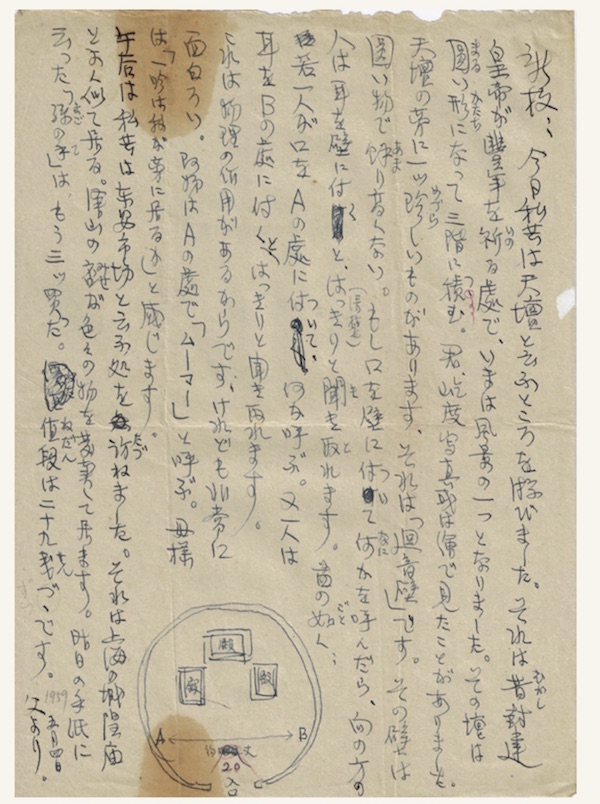 今日私共は天壇と云ふところを游びました。それは昔封建
皇帝が豊年を祈る處で、いまは風景の一つとなりました。その壇は
圓い形になって三階に積む。君、屹度写真或は畫で見たことがありました。
天壇の芽に一ッ珍しいものがあります、それは「迴音壁」です。その壁は
圓い物で餘り高くない。もし口を壁に付て何かを呼んだら、向の方の
人は耳を壁に付くと、はっきりと聞き取れます。
若一人が口をAの處に付いて、何を呼ぶ。又一人は
耳をBの處に付くとはっきりと聞き取れます。
これは物理の作用があるからです、けれども非常に
面白ろい。阿姉はAの處で「ムーマー」と呼ぶ。母様
は「一吟は私が芽に居るか」と感じます。
午后は私共は东安市场と云ふ処を訪ねました。それは上海の城隍庙
とよく似て居る。
云った「孫の手」は、もう三ッ買った。値段は二十九銭づゝです。
父より。
1959
五月四日
むかし
いの
まる かたち
めづら
あま
なに
ごと
たづ
ねだん
せん
殿
殿
殿
A
B
丈
20